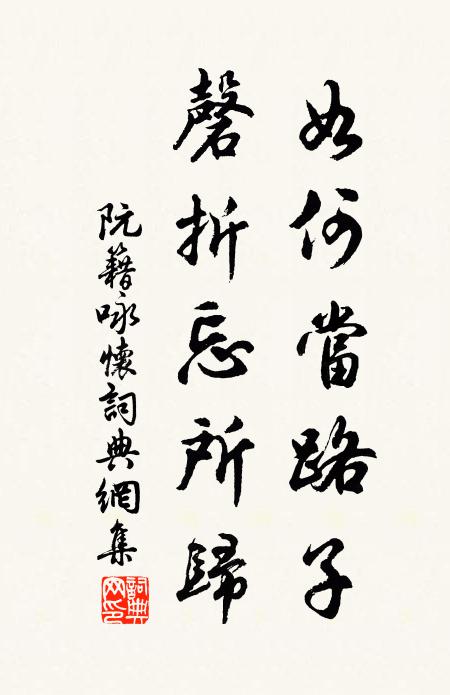 如何當路子
磬折忘所歸
阮籍咏懷詞典網集
詞典网印